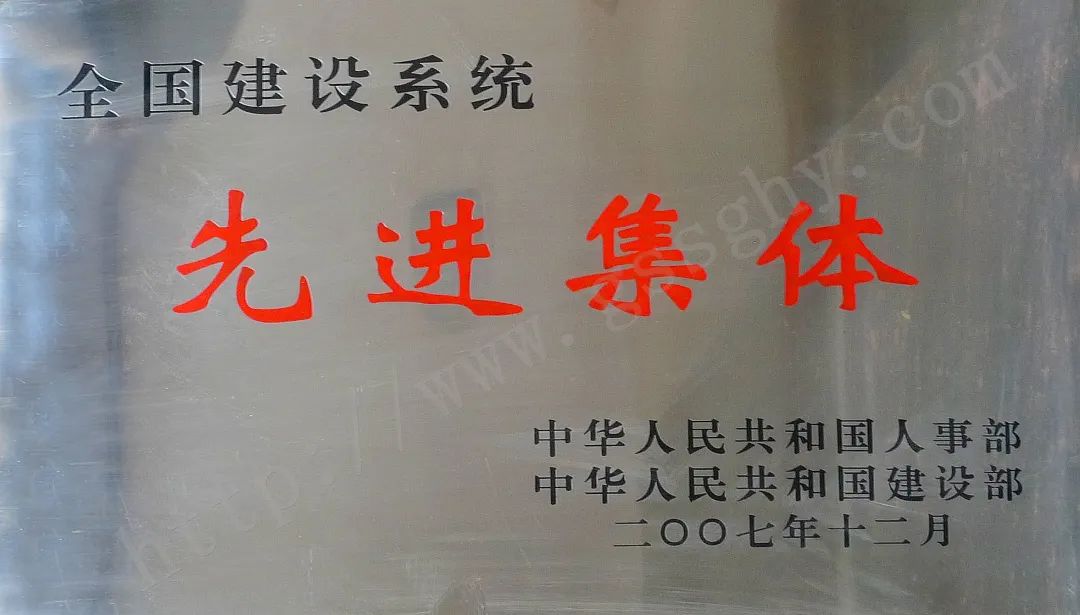 全国建设系统
先进集体
中华人民共和国人事部
中华人民共和国建设部
二〇〇七年十二月